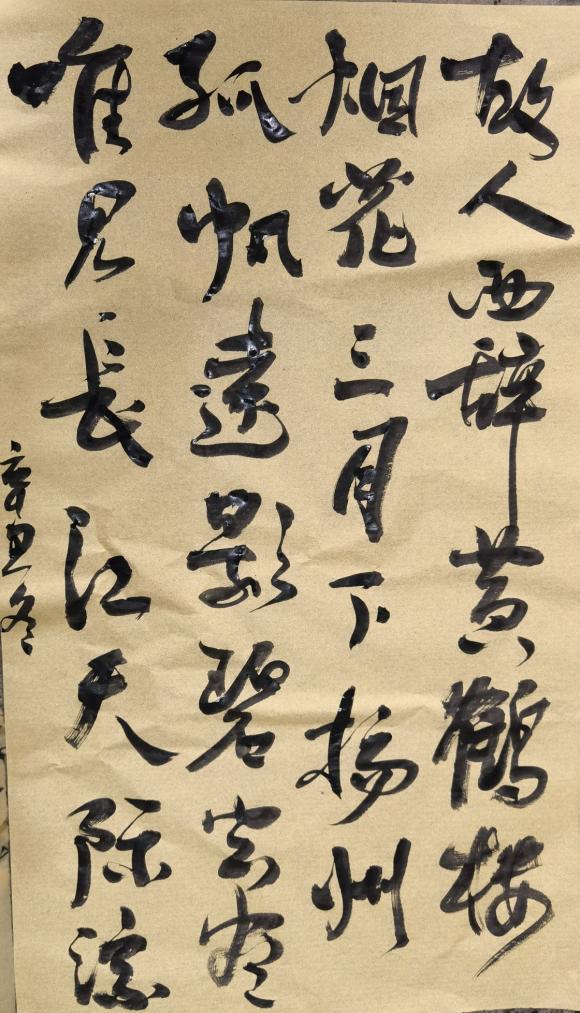 故人西辞黄鹤楼
烟花三月下扬州
孤帆远影碧空尽
唯见长江天际流
辛丑冬